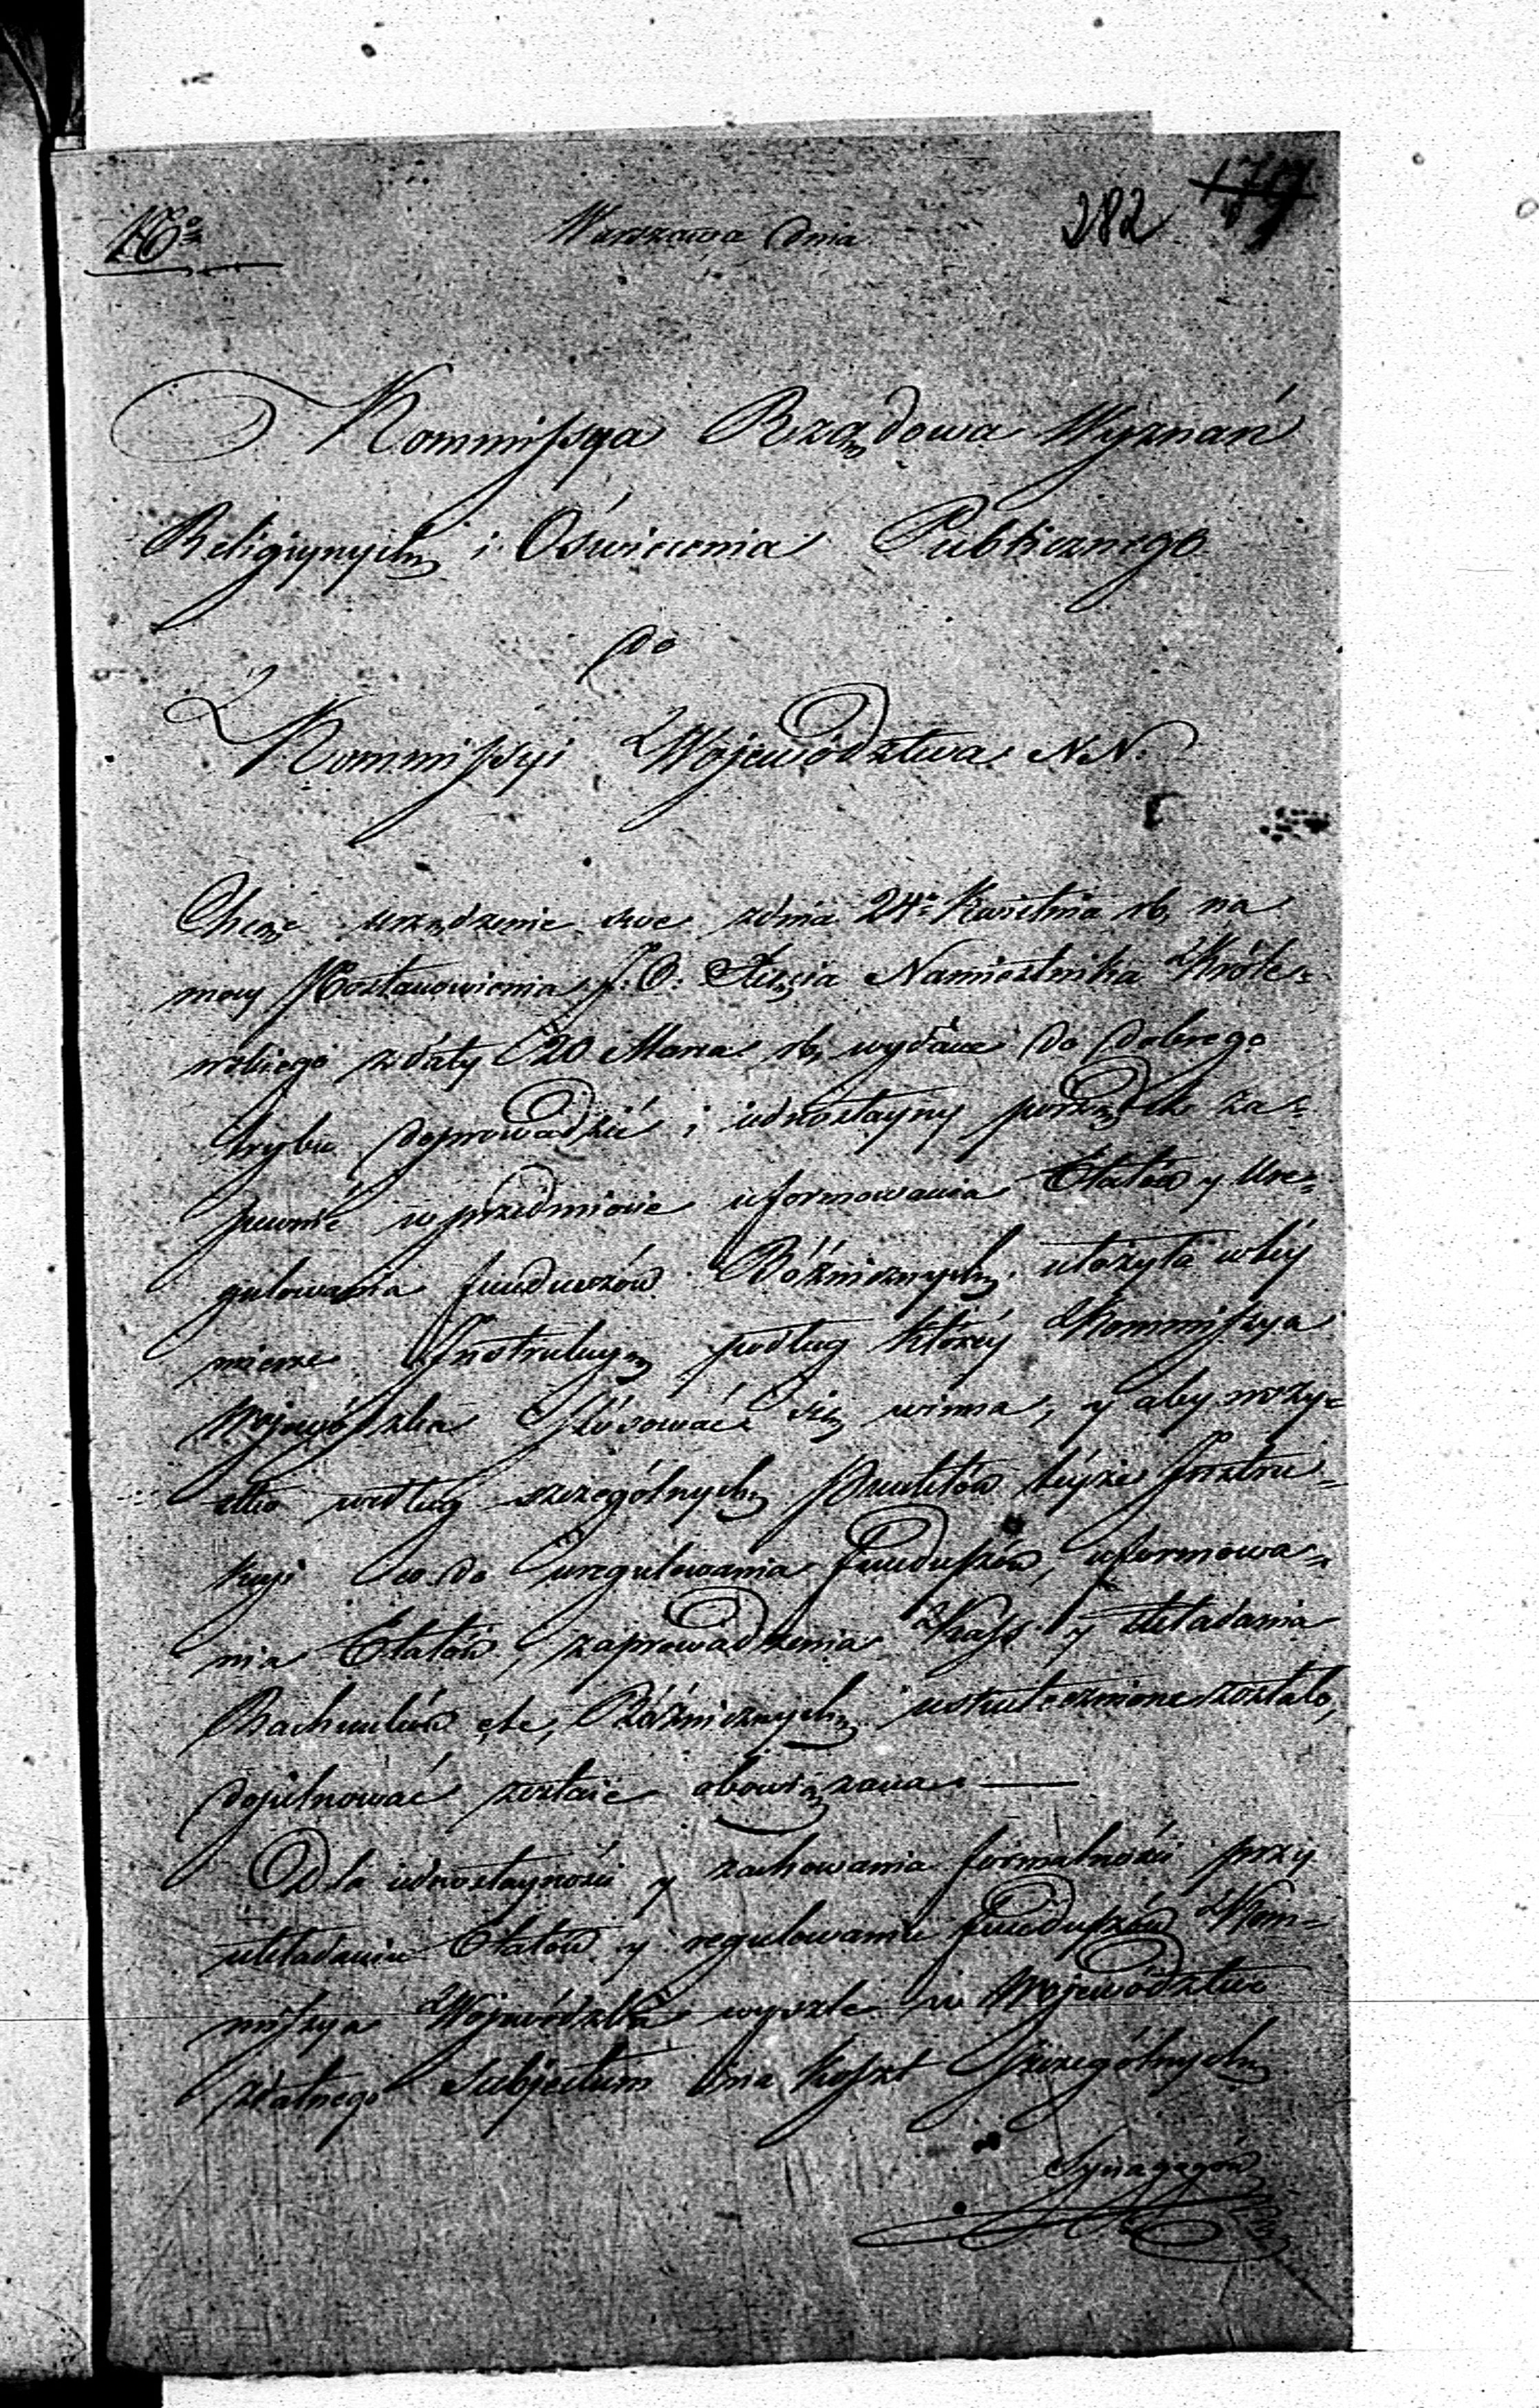 No
Warszawa dnia
282
179
Kommissya Rządowa Wyznań
Religiynych i Oświecenia Publicznego
do
Kommissyi Województwa N.N.
Chcąc urządzenie swe zdnia 24o Kwietnia rb, na
mocy Postanowienia J: O: Xięcia Namiestnika Króle-
wskiego zdaty 20 Marca rb, wydane do dobrego
trybu doprowadzić i iednostayny porządek za-
pewnić w przedmiocie uformowania Etatów y ure-
gulowania funduszów Bóżnicznych, ułożyła w tey
mierze Instrukcyą podług którey Kommissya
Wojewódzka stósować się winna, y aby wszy-
stko według szczególnych Punktów teyże Instru-
kcyi co do uregulowania funduszów, uformowa-
nia Etatów, zaprowadzenia Kass y składania
Rachunków etc, Bóżnicznych uskutecznione zostało,
dopilnować zostaie obowiązana. —
Dla iednostayności y zachowania formalności przy
układaniu Etatów y regulowaniu funduszów Kom-
missya Wojewódzka wyszle w Województwo
zdatnego Subjectum na koszt szczególnych
Synagogów